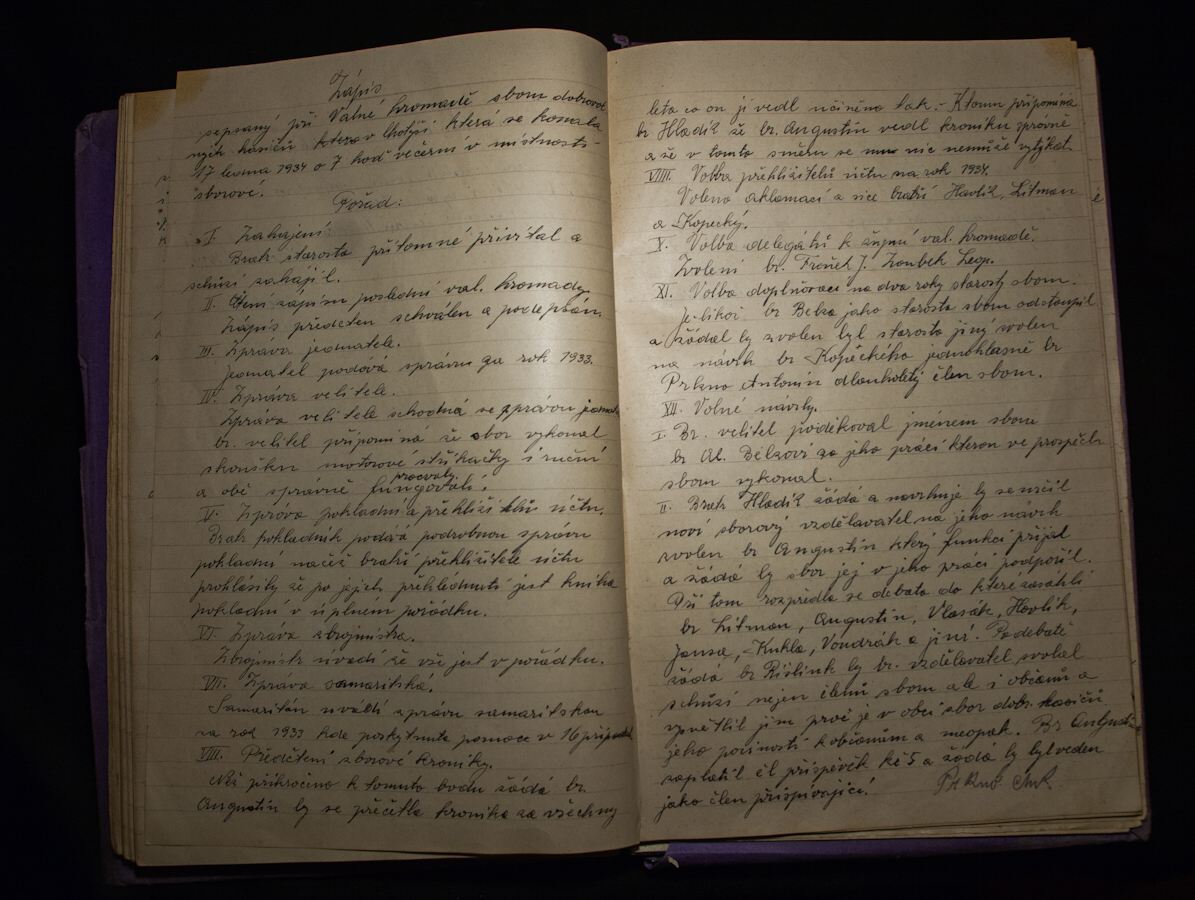 Zápis
sepsaný při Valné hromadě sboru dobrovol
ných hasičů která se konala
17 ledna 1934 o 7 hod večerní v místnosti
sborové.
Pořad:
I. Zahájení:
Bratr starosta přítomné přivítal a
schůzi zahájil.
II. Čtení zápisu poslední val. hromady.
Zápis předčten schválen a podepsán.
III. Zpráva jednatele.
Jednatel podává zprávu za rok 1933.
IV. Zpráva velitele.
Zpráva velitele schodná se zprávou jednat.
br. velitel připomíná že sbor vykonal
skoušku motorové stříkačky i ruční
pracovaly.
a obě správně fungovali.
V. Zpráva pokladní a přehlížitelů účtu.
Bratr pokladník podává podrobnou zprávu
pokladní načež bratří přehlížitelé účtu
prohlásily že po jejich přehlédnutí jest kniha
pokladní v úplném pořádku.
VI. Zpráva zbrojmistra.
Zbrojmistr uvádí že vše jest v pořádku.
VII. Zpráva samaritská.
Samaritán uvádí zprávu samaritskou
za rok 1933 kde poskytnuta pomoc v 16 případ
VIII. Předčtení sborové kroniky.
Než přikročeno k tomuto bodu žádá br.
Augustin by se přečetla kronika za všechny
leta co on ji vedl učiněno tak. - Ktomu připomíná
br Hladík že br. Augustin vedl kroniku správně
a že v tomto směru se nic nemůže vytýkat.
VIIII. Volba přehlížitelů účtu na rok 1934.
Voleno aklamací a sice bratří Havlík, Litman
a Kopecký.
X. Volba delegátů k župní val. hromadě.
Zvoleni br. J. Zoubek Leop.
XI. Volba doplňovací na dva roky starosty sboru.
Jelikož br Belza jako starosta sboru odstoupil
a žádal by zvolen byl starosta jiný zvolen
na návrh br Kopeckého jednohlasně br
Prkno Antonín dlouholetý člen sboru.
XII. Volné návrhy.
I. Br. velitel poděkoval jménem sboru
br Al. Belzovi za jeho práci kterou ve prospěch
sboru vykonal.
II. Bratr Hladík žádá a navrhuje by se určil
noví sborový vzdělavatel na jeho návrh
zvolen br Augustin který funkci přijal
a žádá by sbor jej v jeho práci podpořil.
Při tom rozpředla se debata do které zasáhli
br Litman, Augustin, Vlasák, Havlík,
Jansa, Kukla, Vondrák a jiní. Po debatě
žádá br Rišlink by br. vzdělavatel svolal
schůzi nejen členů sboru ale i občanů a
vysvětlil jim proč je v obci sbor dobr. hasičů
jeho povinosti k občanům a naopak. Br Augusti
zaplatil čl příspěvek kč 5 a žádá by byl veden
jako člen přispívající!
Prkno Ant.